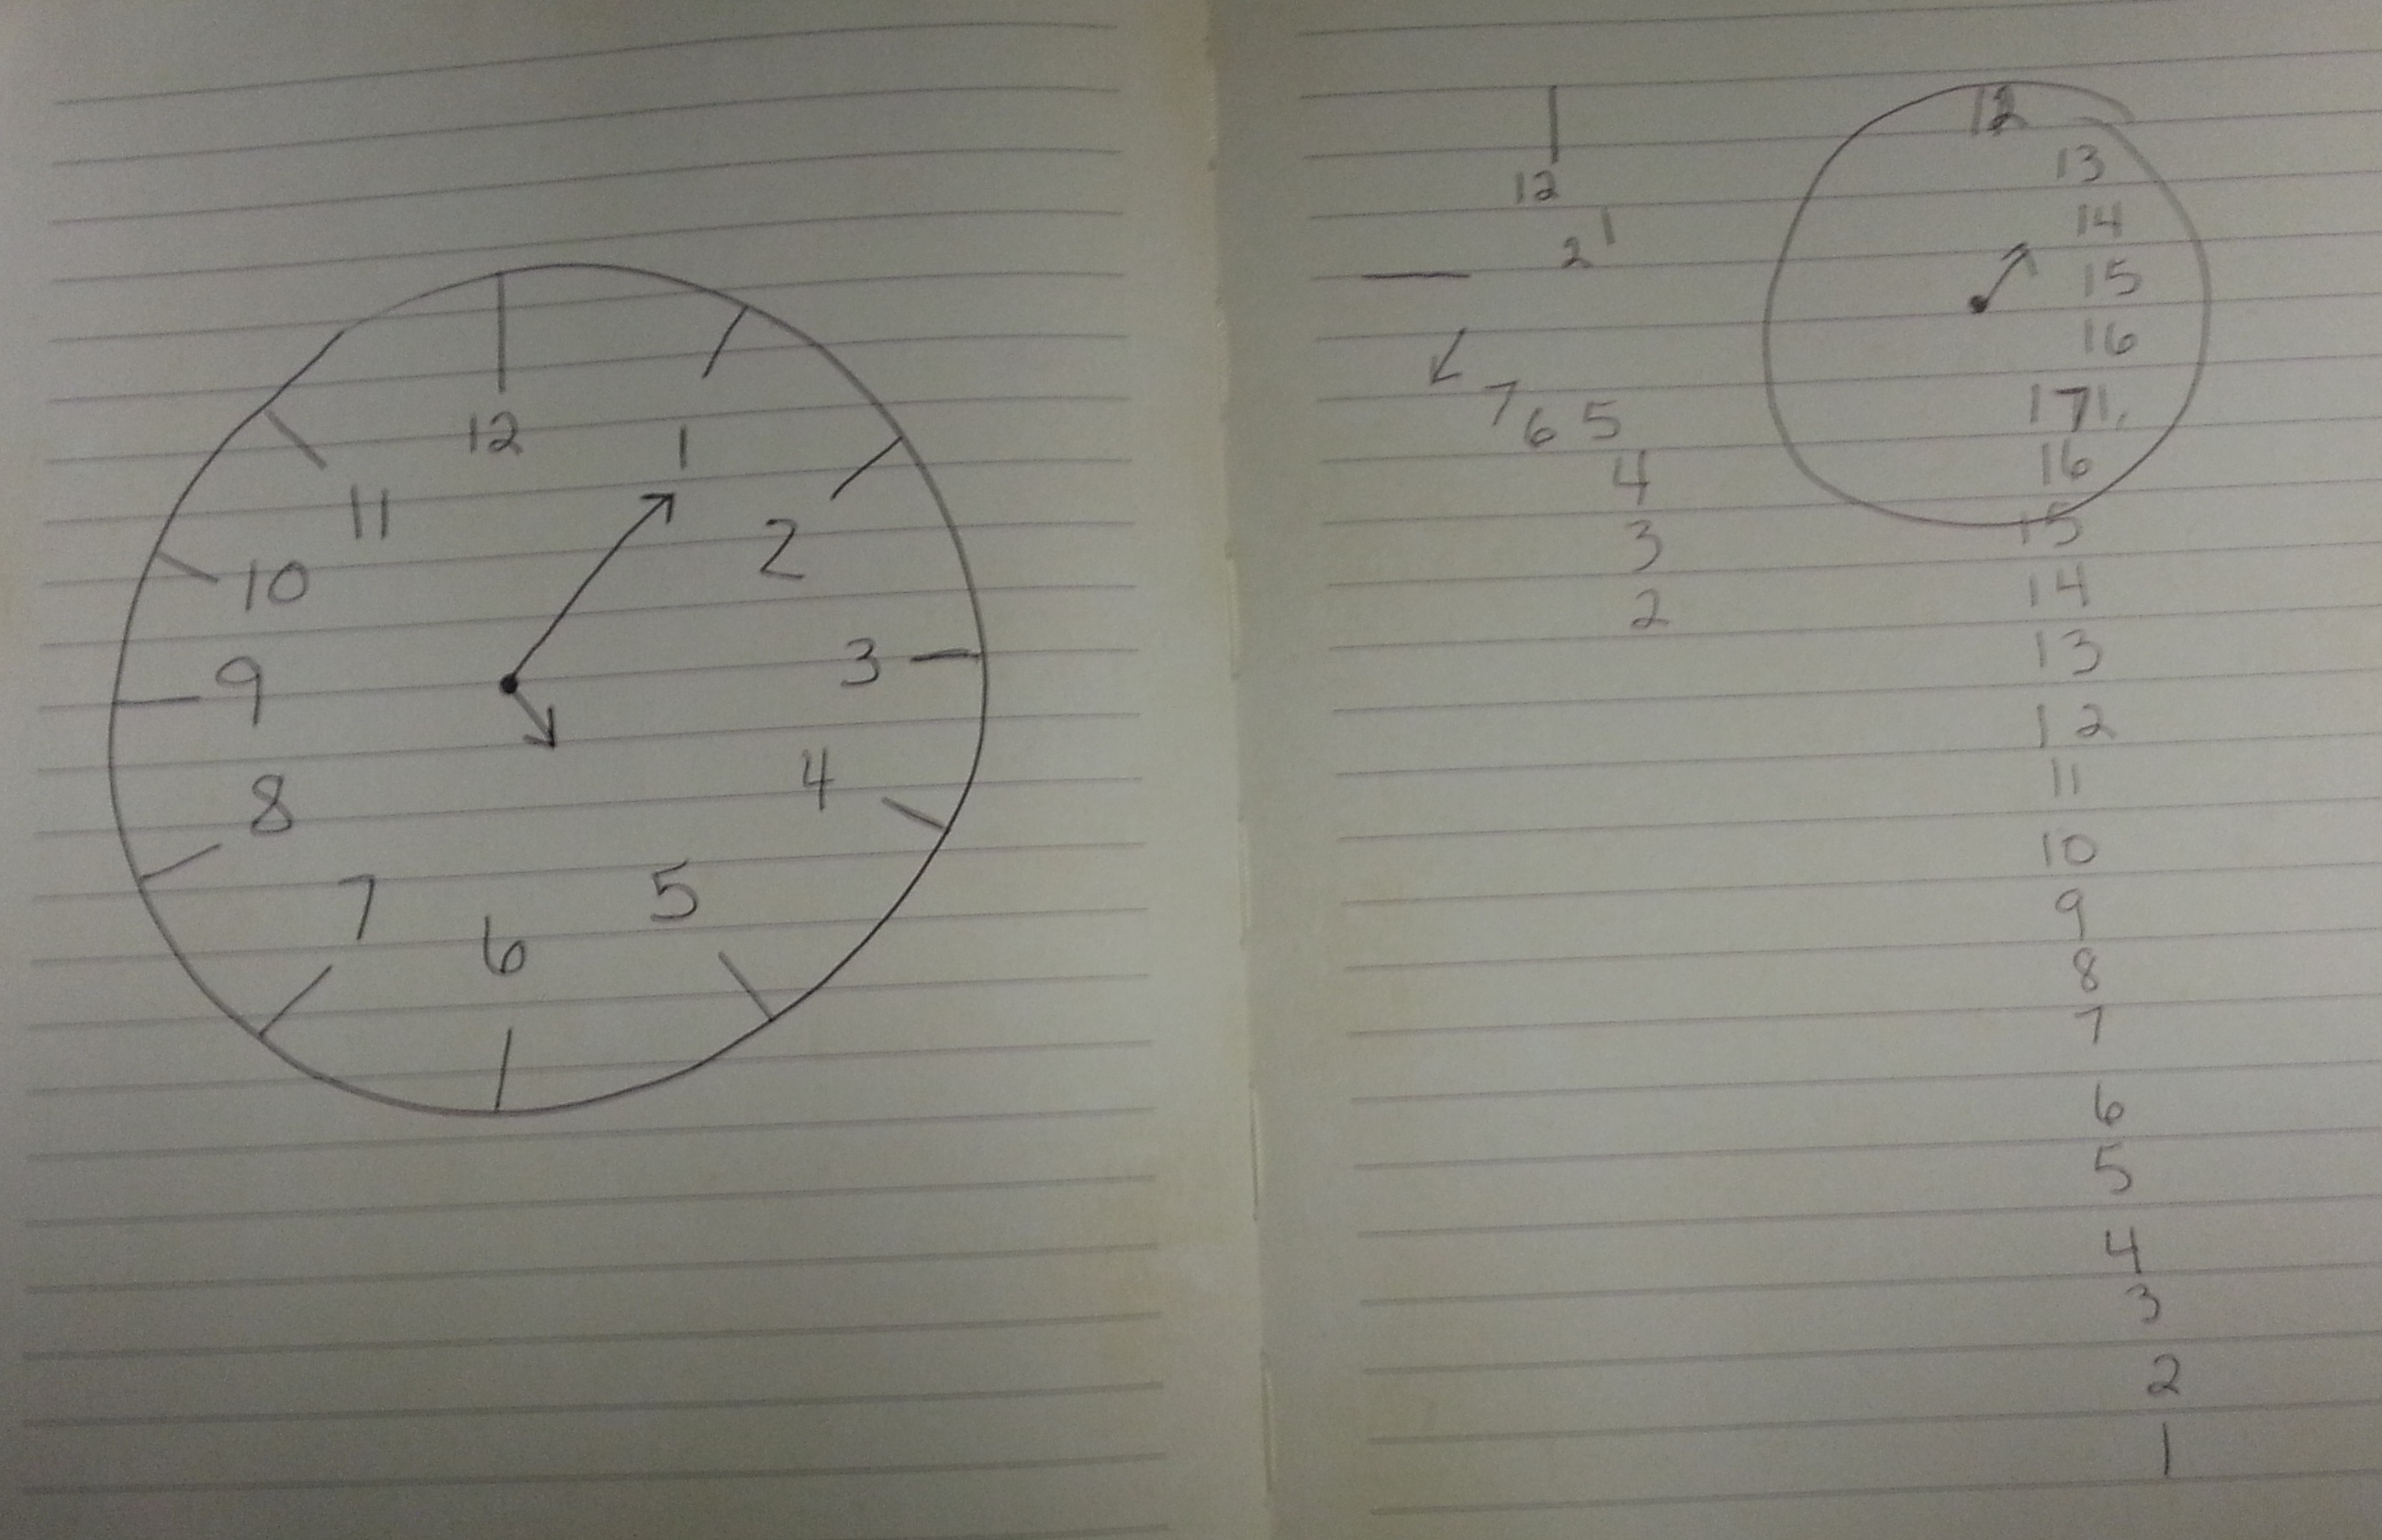 12
1
11
2
10
3
9
4
8
5
7
6
12
1
2
7 6 5
4
3
2
12
13
14
15
16
171
16
15
14
13
12
11
10
9
8
7
6
5
4
3
2
1